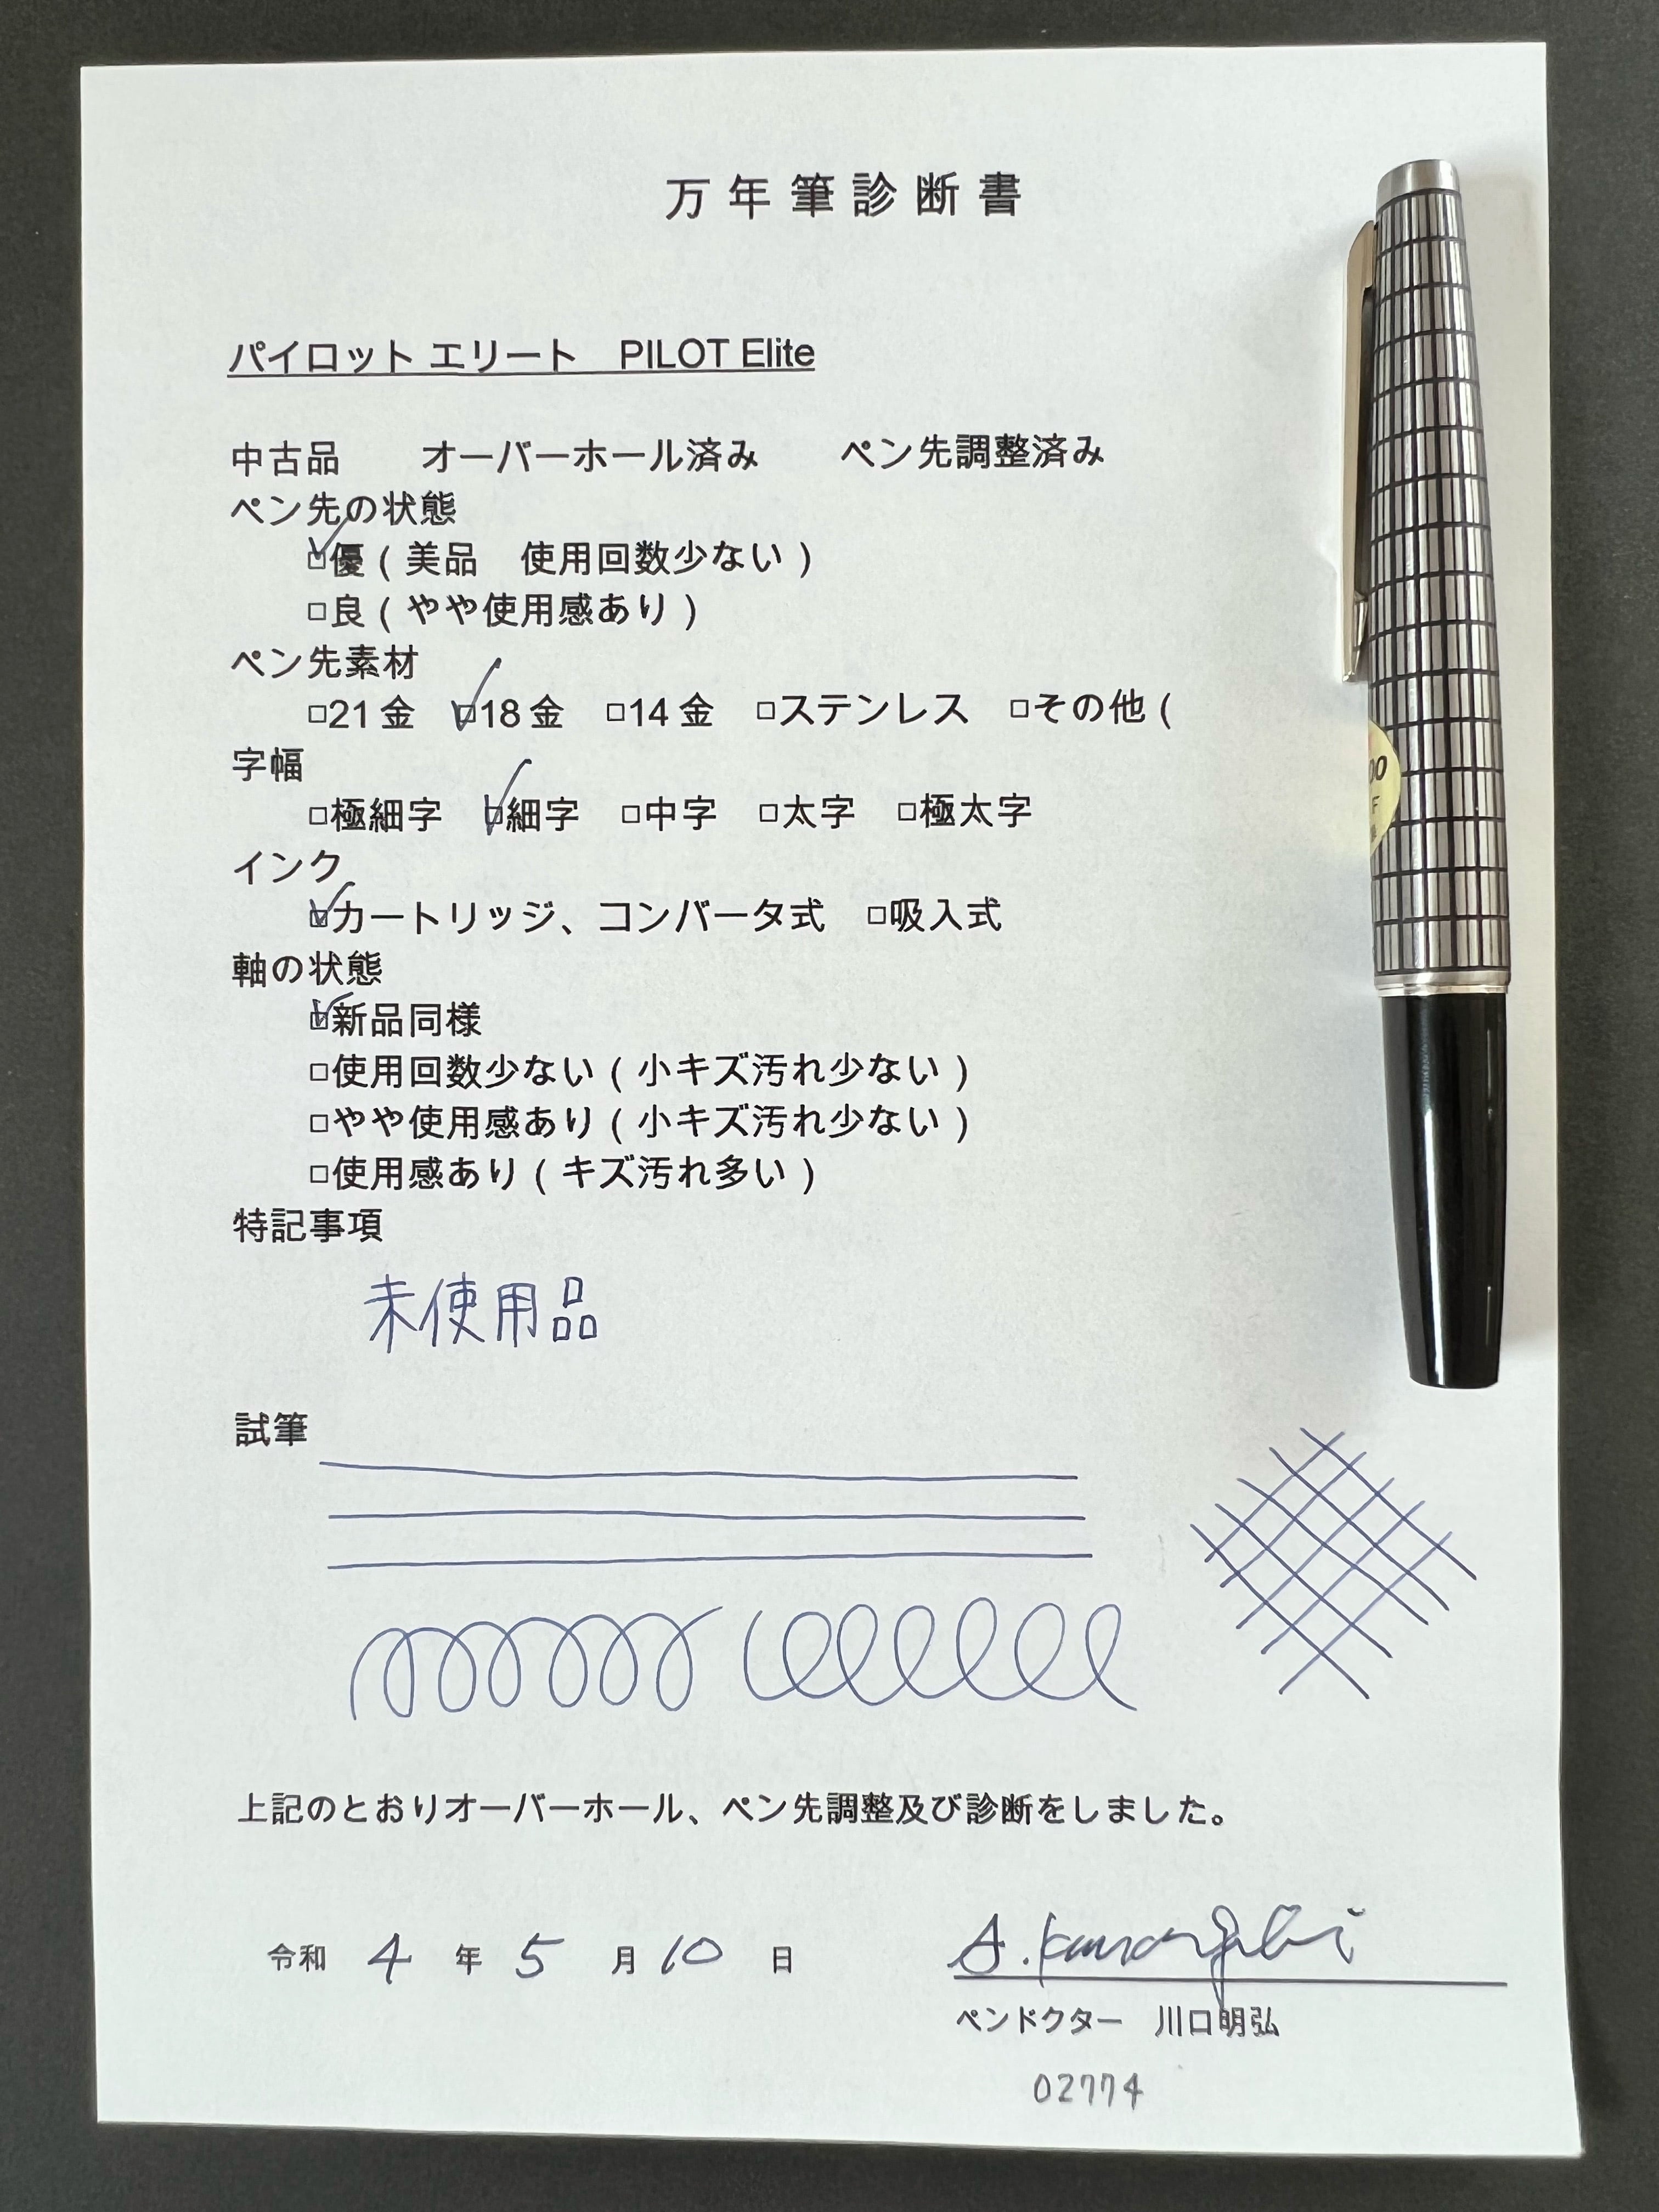 万年筆診断書
パイロット エリート　PILOT Elite
中古品　　オーバーホール済み　　ペン先調整済み
ペン先の状態
☑優（美品　使用回数少ない）
□良（やや使用感あり）
ペン先素材
□21金　☑18金　□14金　□ステンレス　□その他（
字幅
□極細字　☑細字　□中字　□太字　□極太字
インク
☑カートリッジ、コンバータ式　□吸入式
軸の状態
☑新品同様
□使用回数少ない（小キズ汚れ少ない）
□やや使用感あり（小キズ汚れ少ない）
□使用感あり（キズ汚れ多い）
特記事項
未使用品
試筆
上記のとおりオーバーホール、ペン先調整及び診断をしました。
令和 4 年 5 月 10 日
A. Kawaguchi
ペンドクター　川口明弘
02774
00
F